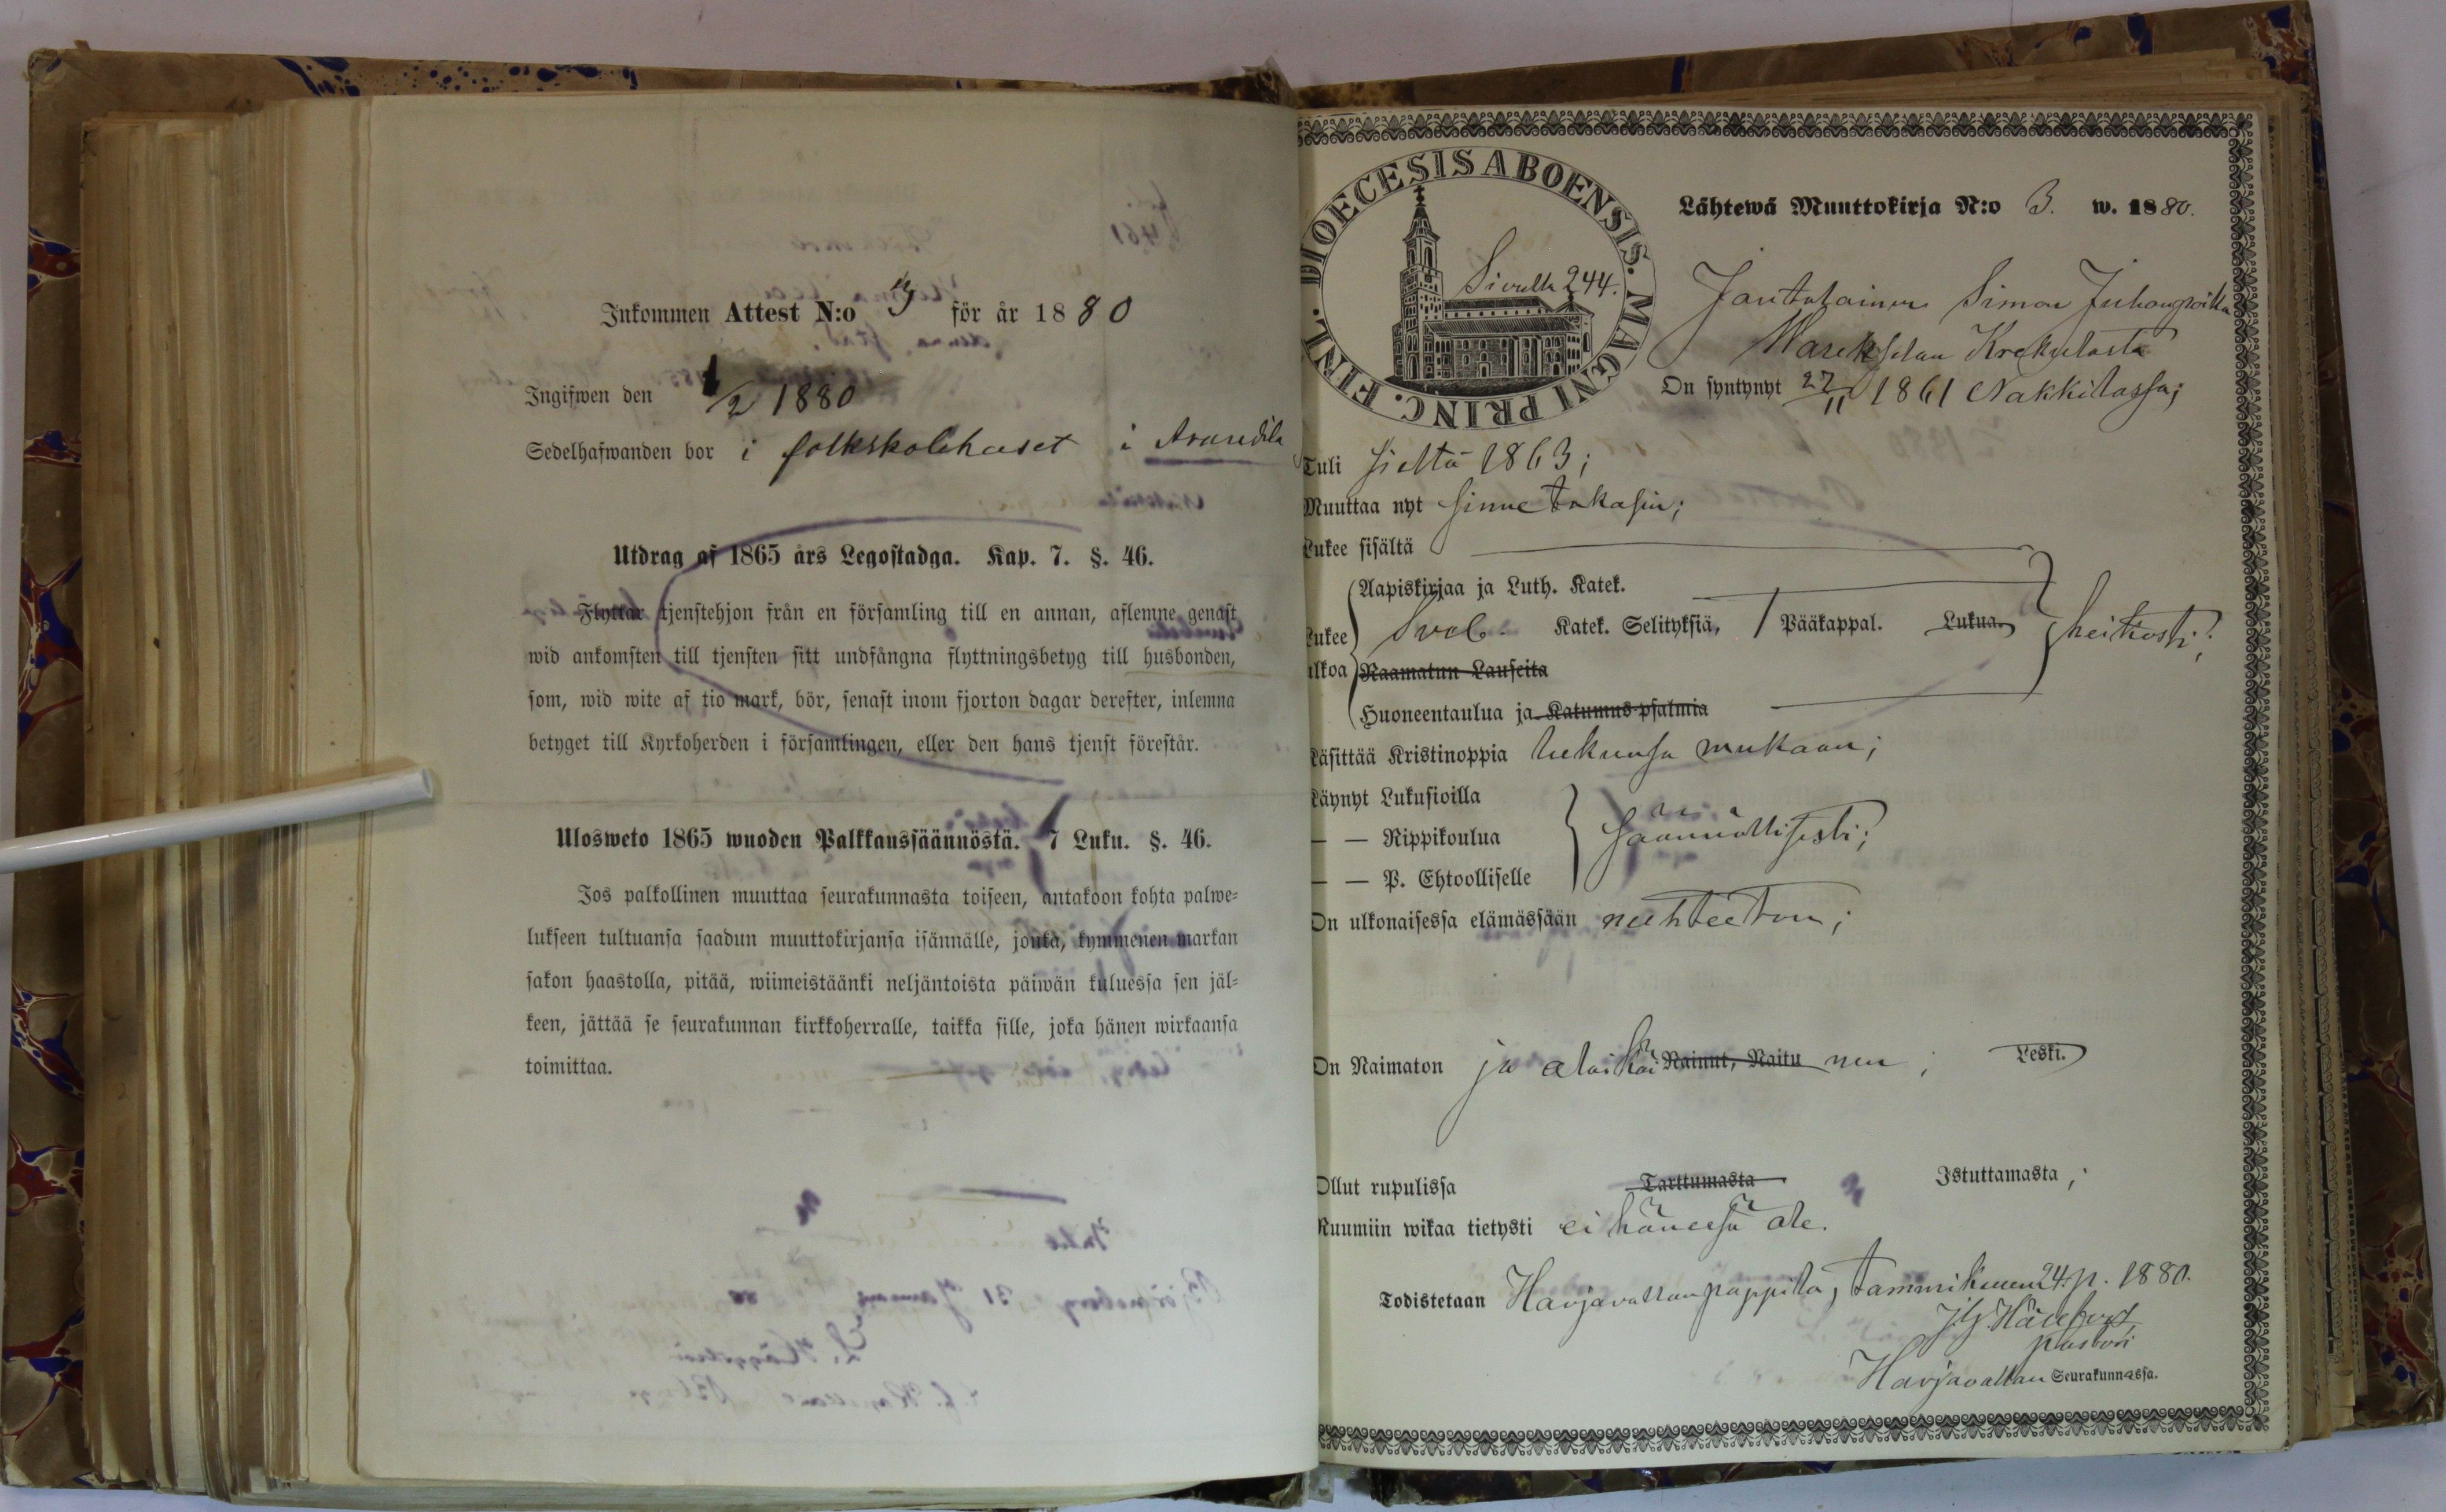 Inkommen Attest N:o 9 för år 1880
Ingifwen den 1/2 1880
Sedelhafwanden bor i folkskolehuset i
Utdrag af 1865 års Legostadga. Kap. 7. §. 46.
Flyttar tjenstehjon från en församling till en annan, aflemne genast
wid ankomsten till tjensten sitt undfångna flyttningsbetyg till husbonden,
som, wid wite af tio mark, bör, senast inom fjorton dagar derefter, inlemna
betyget till Kyrkoherden i församlingen, eller den hans tjenst förestår.
Ulosweto 1865 wuoden Palkkaussäännöstä. 7 Luku. §. 46.
Jos palkollinen muuttaa seurakunnasta toiseen, antakoon kohta palwe-
lukseen tultuansa saadun muuttokirjansa isännälle, jonka, kymmenen markan
sakon haastolla, pitää, wiimeistäänki neljäntoista päiwän kuluessa sen jäl-
keen, jättää se seurakunnan kirkkoherralle, taikka sille, joka hänen wirkaansa
toimittaa.
DIOECESIS ABOENSIS. MAGNI PRINC. FINL.
Sivulta 244.
Lähtewä Muuttokirja N:o 3. w. 1880.
Simon Juhanpoika
Krekulasta
On syntynyt 27/11 1861 Nakkilassa;
Tuli sieltä 1863;
Muuttaa nyt sinne takasin;
Lukee sisältä
Aapiskirjaa ja Luth. Katek.
Lukee ulkoa Sveb. Katek. Selityksiä, 1 Pääkappal. Lukua. heikosti;
Raamatun Lauseita
Huoneentaulua ja Katumus-psalmia
Käsittää Kristinoppia lukunsa mukaan;
Käynyt Lukusioilla
— — Rippikoulua säännöllisesti;
— — P. Ehtoolliselle
On ulkonaisessa elämässään nuhteeton;
On Naimaton ja alaikäi Nainut, Naitu nen; Leski.
Ollut rupulissa Tarttumasta Istuttamasta;
Ruumiin wikaa tietysti ei hänessä ole.
Todistetaan Harjavallan pappila, tammikuun 24 p. 1880.
pastori
Harjavallan Seurakunnassa.